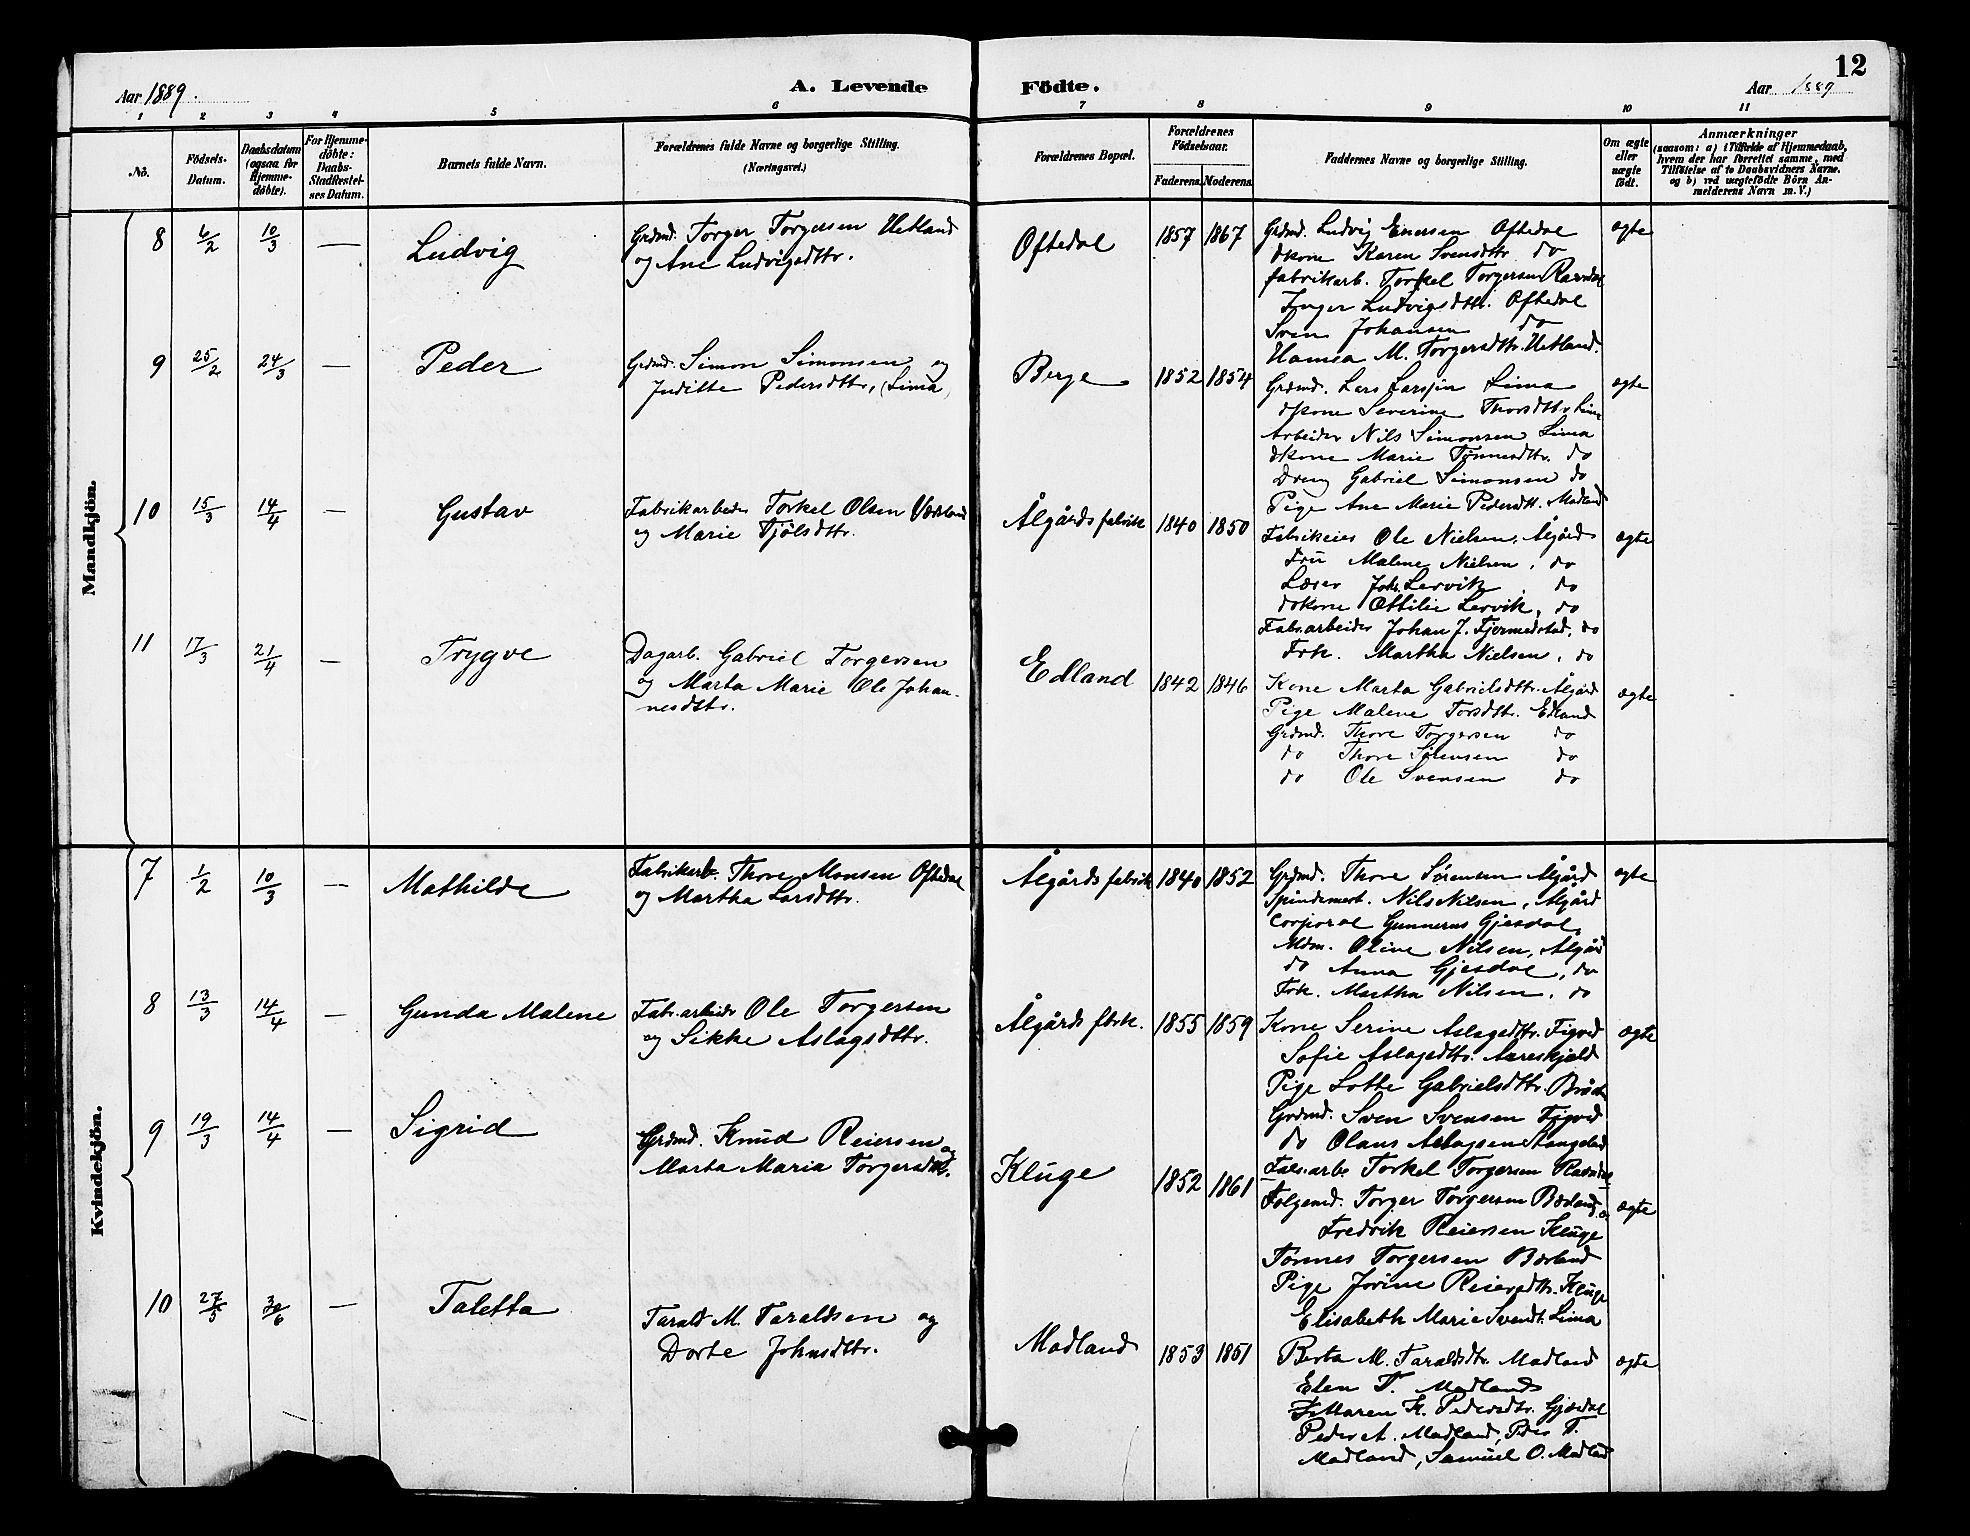 12
Aar 1889.
A. Levende Födte.
Aar 1889
1 2 3 4 5 6 7 8 9 10 11
No.
Födsels-Datum.
Daabsdatum (ogsaa for Hjemme-döbte).
For Hjemme-döbte: Daabs-Stadfæstel-ses Datum.
Barnets fulde Navn.
Forældrenes fulde Navne og borgerlige Stilling. (Næringsvei.)
Forældrenes Bopæl.
Forældrenes Födselsaar.
Faderens. Moderens.
Faddernes Navne og borgerlige Stilling.
Om ægte eller uægte födt.
Anmærkninger
(saasom: a) i Tilfælde af Hjemmedaab, hvem der har forrettet samme, med Tilföielse af to Daabsvidners Navne. og b) ved uægtefödte Börn An-melderens Navn m. V.)
Mandkjön.
8 6/2 10/3 — Ludvig
Grdmd. Torger Torgersen Hetland
og Ane Ludvigsdttr.
Oftedal 1857 1867
Grdmd. Ludvig Enersen Oftedal
dkone Karen Svensdttr do
fabrikarb. Torkel Torgersen Ravndal
Inger Ludvigsdttr. Oftedal
Sven Johansen do
Hanna M. Torgersdttr. Hetland.
ægte
9 25/2 24/3 — Peder
Grdmd. Simon Simonsen og
Juditte Pedersdttr, (Lima)
Berge 1852 1854
Grdmd. Lars Larssen Lima
dkone Severine Thorsdttr Lima
Arbeider Nils Simonsen Lima
dkone Marie Tønnesdttr. do
Dreng Gabriel Simonsen do
Pige Ane Marie Pedersdtt. Madland
ægte
10 15/3 14/4 — Gustav
Fabrikarbeider Torkel Olsen
og Marie Tjölsdttr.
Ålgårds fabrik 1840 1850
Fabrikeier Ole Nielsen, Ålgård
Fru Malene Nielsen, do
Lærer Joh. Lervik do
dokone Ottilie Lervik, do
Fabr.arbeider Johan J. Fjermedstad, do
Frk. Martha Nielsen, do
ægte
11 17/3 21/4 — Trygve
Dagarb. Gabriel Torgersen
og Marta Marie Ole Johan-
nesdttr.
Edland 1842 1846
Kone Marta Gabrielsdttr. Ålgård
Pige Malene Torsdttr. Edland
Grdmd. Thore Torgersen do
do Thore Sørensen do
do Ole Svensen do
ægte
Kvindekjön.
7 1/2 10/3 — Mathilde
Fabrikarb. Thore Monsen Oftedal
og Martha Larsdttr.
Ålgårds fabrik 1840 1852
Grdmd. Thore Sørensen Ålgård
Spindemest. Nils Nilsen, Ålgård
Corporal Gunnerus Gjesdal,
Mdm. Oline Nilsen, Ålgård
do Anna Gjesdal, do
Frk. Martha Nilsen, do
ægte
8 13/3 14/4 — Gunda Malene
Fabr.arbeider Ole Torgersen
og Sikke Aslagsdttr.
Ålgårds fbrk. 1855 1859
Kone Serine Aslagsdttr. Figved
Sofie Aslagsdttr. Aareskjold
Pige Lotte Gabrielsdttr.
Grdmd. Sven Svensen Figved
do Olaus Aslagsen
Fabr.arb. Torkel Torgersen Ravndal
ægte
9 19/3 14/4 — Sigrid
Grdmd. Knud Reiersen og
Marta Maria Torgersdttr.
Kluge 1852 1861
Folgemd. Torger Torgersen Bærland
Fredrik Reiersen Kluge
Tønnes Torgersen Bærland
Pige Jorine Reiersdttr. Kluge
Elisabeth Marie Svendt. Lima
ægte
10 27/5 30/6 — Taletta
Tarald M. Taraldsen og
Dorte Johnsdttr.
Madland 1859 1851
Berta M. Taraldsdtr. Madland
Elen T. Madland
Maren K. Pedersdtr. Gjesdal
Peder A. Madland, Peder T.
Madland, Samuel O. Madland
ægte